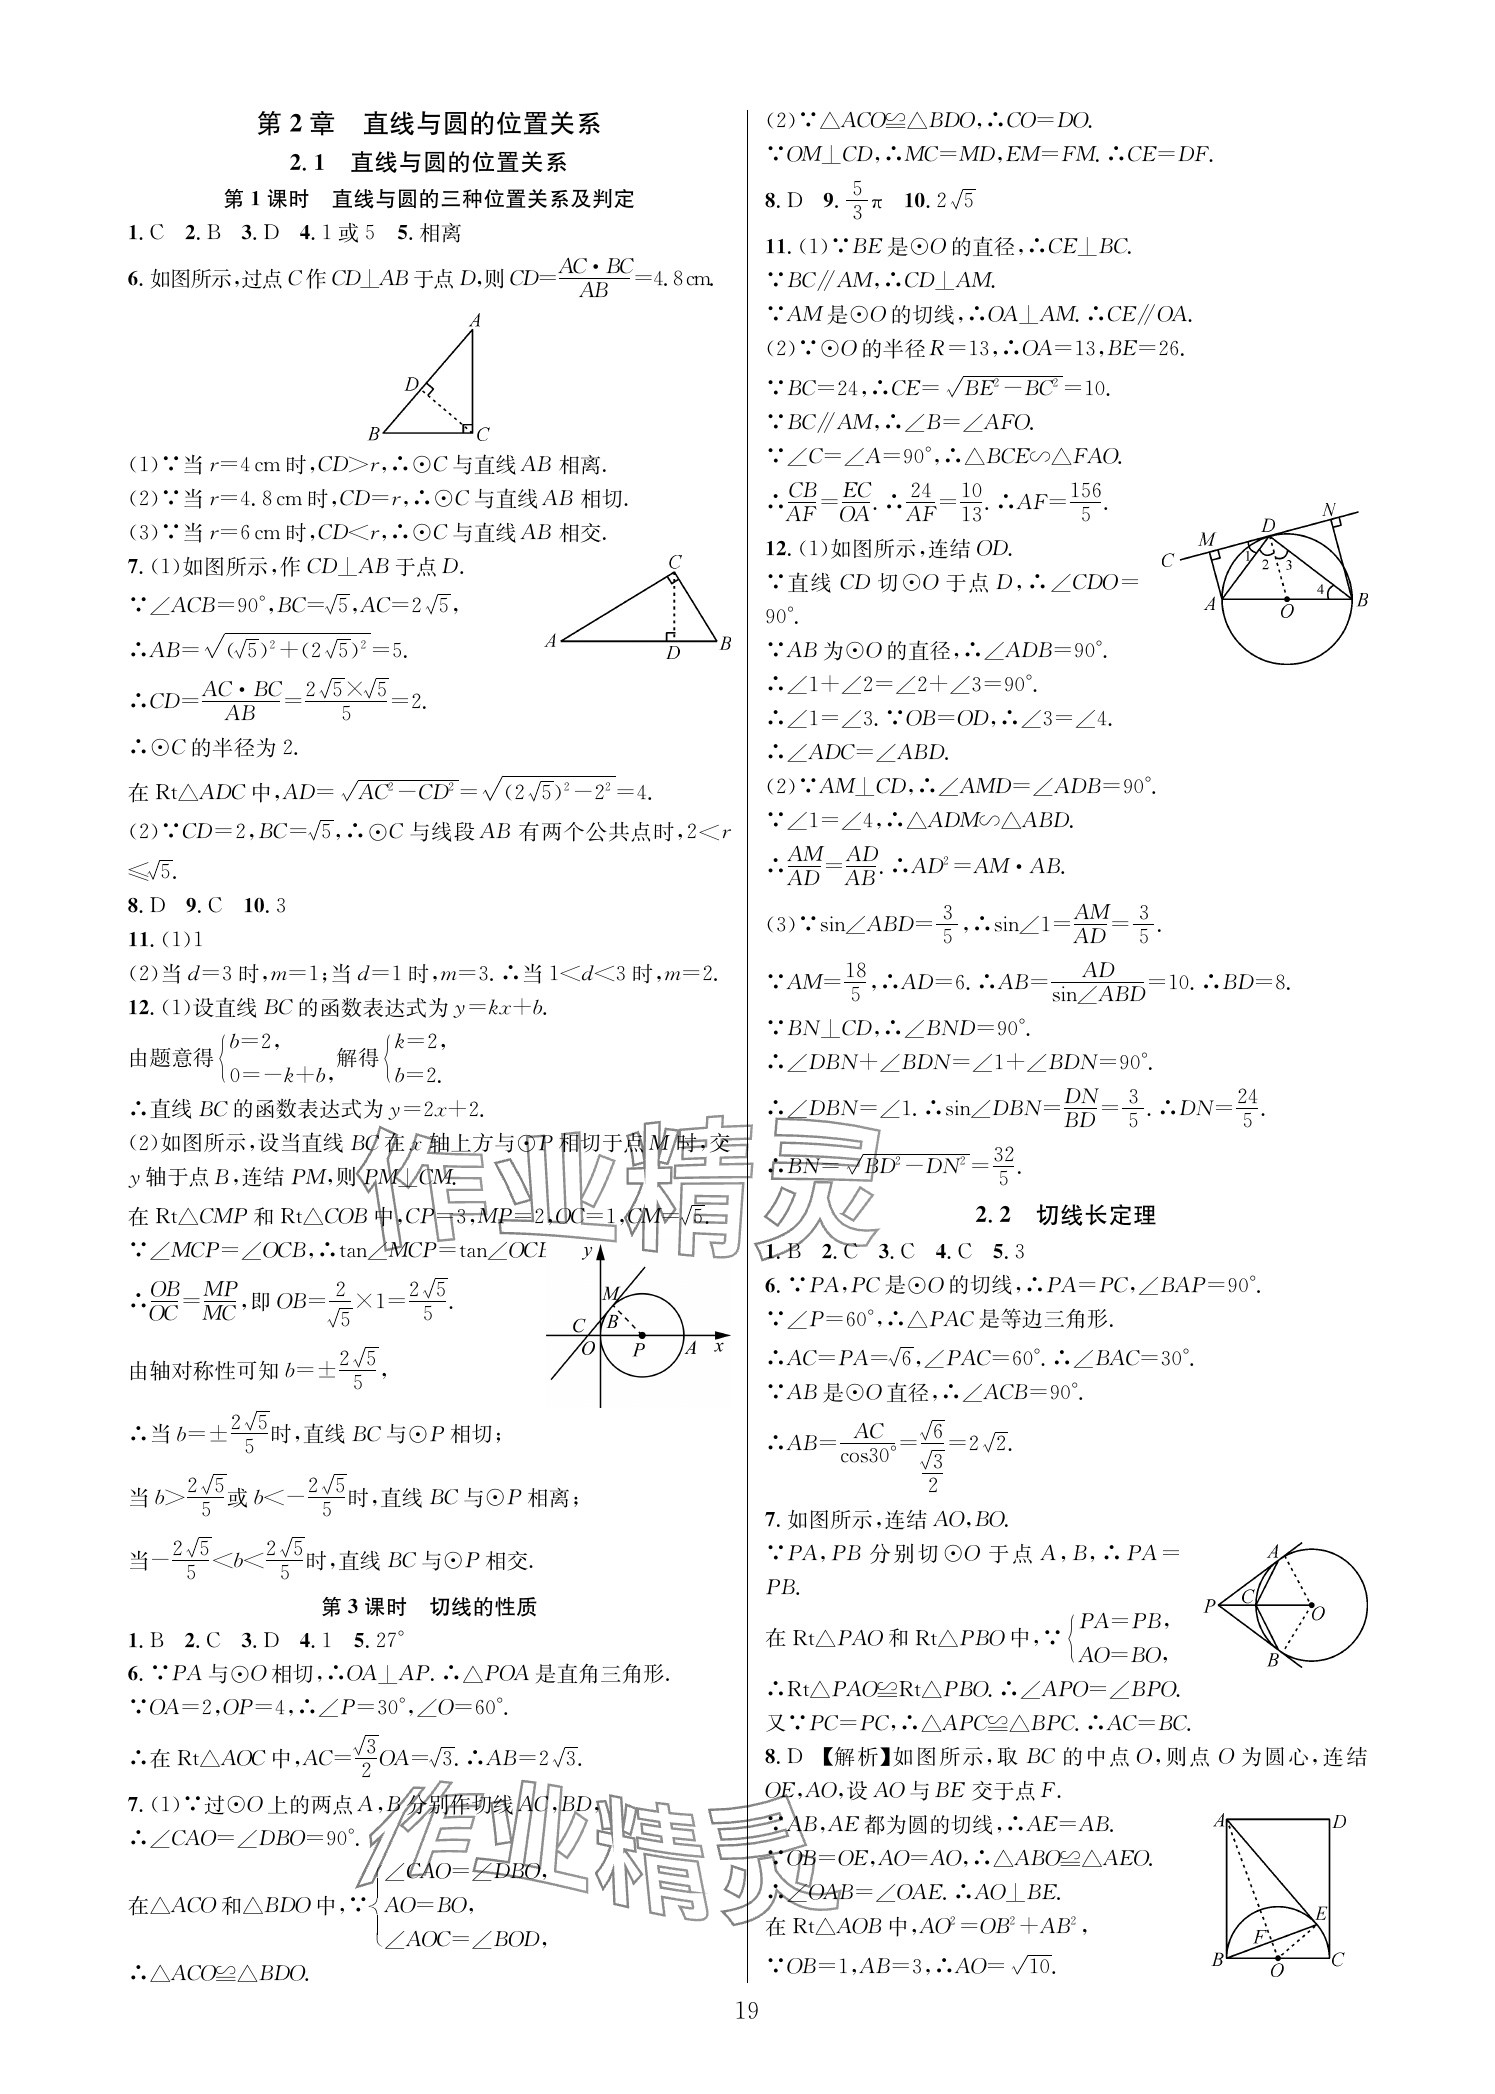 第2章　直线与圆的位置关系
2.1　直线与圆的位置关系
第1课时　直线与圆的三种位置关系及判定
1. C　2. B　3. D　4. 1或5　5. 相离
6. 如图所示,过点C作CD⊥AB于点D,则CD=AC·BC/AB=4.8cm.
A
D
B
C
(1)∵当r=4cm时,CD>r,∴⊙C与直线AB相离.
(2)∵当r=4.8cm时,CD=r,∴⊙C与直线AB相切.
(3)∵当r=6cm时,CD<r,∴⊙C与直线AB相交.
7. (1)如图所示,作CD⊥AB于点D.
∵∠ACB=90°,BC=√5,AC=2√5,
∴AB=√((√5)²+(2√5)²)=5.
∴CD=AC·BC/AB=2√5×√5/5=2.
C
A
D
B
∴⊙C的半径为2.
在Rt△ADC中,AD=√(AC²-CD²)=√((2√5)²-2²)=4.
(2)∵CD=2,BC=√5,∴⊙C与线段AB有两个公共点时,2<r
≤√5.
8. D　9. C　10. 3
11. (1)1
(2)当d=3时,m=1;当d=1时,m=3. ∴当1<d<3时,m=2.
12. (1)设直线BC的函数表达式为y=kx+b.
由题意得{b=2, 0=-k+b, 解得{k=2, b=2.
∴直线BC的函数表达式为y=2x+2.
(2)如图所示,设当直线BC在x轴上方与⊙P相切于点M时,交
y轴于点B,连结PM,则PM⊥CM.
在Rt△CMP和Rt△COB中,CP=3,MP=2,OC=1,CM=√5.
∵∠MCP=∠OCB,∴tan∠MCP=tan∠OCB
∴OB/OC=MP/MC,即OB=2/√5×1=2√5/5.
由轴对称性可知b=±2√5/5,
y
M
C
B
O
P
A
x
∴当b=±2√5/5时,直线BC与⊙P相切;
当b>2√5/5或b<-2√5/5时,直线BC与⊙P相离;
当-2√5/5<b<2√5/5时,直线BC与⊙P相交.
第3课时　切线的性质
1. B　2. C　3. D　4. 1　5. 27°
6. ∵PA与⊙O相切,∴OA⊥AP. ∴△POA是直角三角形.
∵OA=2,OP=4,∴∠P=30°,∠O=60°.
∴在Rt△AOC中,AC=√3/2OA=√3. ∴AB=2√3.
7. (1)∵过⊙O上的两点A,B分别作切线AC,BD,
∴∠CAO=∠DBO=90°.
在△ACO和△BDO中,∵{∠CAO=∠DBO, AO=BO, ∠AOC=∠BOD,
∴△ACO≌△BDO.
(2)∵△ACO≌△BDO,∴CO=DO.
∵OM⊥CD,∴MC=MD,EM=FM. ∴CE=DF.
8. D　9. 5/3π　10. 2√5
11. (1)∵BE是⊙O的直径,∴CE⊥BC.
∵BC∥AM,∴CD⊥AM.
∵AM是⊙O的切线,∴OA⊥AM. ∴CE∥OA.
(2)∵⊙O的半径R=13,∴OA=13,BE=26.
∵BC=24,∴CE=√(BE²-BC²)=10.
∵BC∥AM,∴∠B=∠AFO.
∵∠C=∠A=90°,∴△BCE∽△FAO.
∴CB/AF=EC/OA. ∴24/AF=10/13. ∴AF=156/5.
12. (1)如图所示,连结OD.
∵直线CD切⊙O于点D,∴∠CDO=
90°.
N
D
M
C
1
2
3
4
A
O
B
∵AB为⊙O的直径,∴∠ADB=90°.
∴∠1+∠2=∠2+∠3=90°.
∴∠1=∠3. ∵OB=OD,∴∠3=∠4.
∴∠ADC=∠ABD.
(2)∵AM⊥CD,∴∠AMD=∠ADB=90°.
∵∠1=∠4,∴△ADM∽△ABD.
∴AM/AD=AD/AB. ∴AD²=AM·AB.
(3)∵sin∠ABD=3/5,∴sin∠1=AM/AD=3/5.
∵AM=18/5,∴AD=6. ∴AB=AD/sin∠ABD=10. ∴BD=8.
∵BN⊥CD,∴∠BND=90°.
∴∠DBN+∠BDN=∠1+∠BDN=90°.
∴∠DBN=∠1. ∴sin∠DBN=DN/BD=3/5. ∴DN=24/5.
∴BN=√(BD²-DN²)=32/5.
2.2　切线长定理
1. B　2. C　3. C　4. C　5. 3
6. ∵PA,PC是⊙O的切线,∴PA=PC,∠BAP=90°.
∵∠P=60°,∴△PAC是等边三角形.
∴AC=PA=√6,∠PAC=60°. ∴∠BAC=30°.
∵AB是⊙O直径,∴∠ACB=90°.
∴AB=AC/cos30°=√6/(√3/2)=2√2.
7. 如图所示,连结AO,BO.
∵PA,PB分别切⊙O于点A,B,∴PA=
PB.
在Rt△PAO和Rt△PBO中,∵{PA=PB, AO=BO,
A
P
C
O
B
∴Rt△PAO≌Rt△PBO. ∴∠APO=∠BPO.
又∵PC=PC,∴△APC≌△BPC. ∴AC=BC.
8. D　【解析】如图所示,取BC的中点O,则点O为圆心,连结
OE,AO,设AO与BE交于点F.
∵AB,AE都为圆的切线,∴AE=AB.
∵OB=OE,AO=AO,∴△ABO≌△AEO.
∴∠OAB=∠OAE. ∴AO⊥BE.
在Rt△AOB中,AO²=OB²+AB²,
∵OB=1,AB=3,∴AO=√10.
A
D
E
F
B
O
C
作业精灵
作业精灵
19